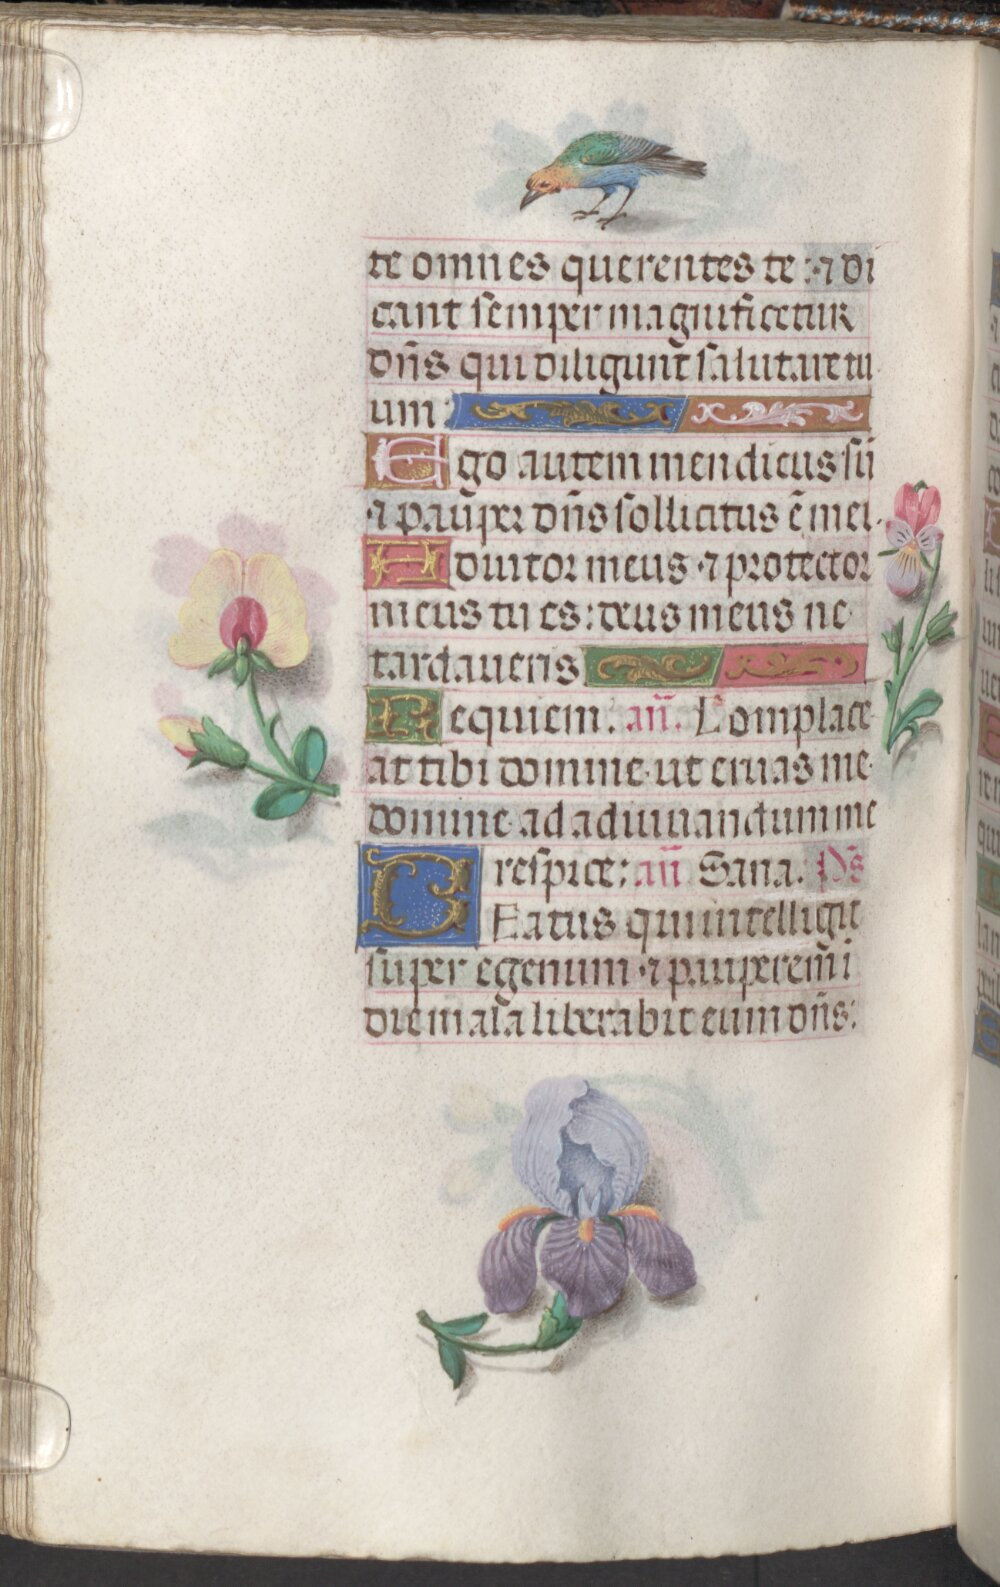 te omnes querentes te: ⁊ di
cant semper magnificetur
dñs qui diligunt salutare tu
um:
Ego autem mendicus sū
⁊ paup̄er dñs sollicitus ē mei.
Adiutor meus ⁊ protector
meus tu es: deus meus ne
tardaveris
Requiem. añ. Complace
at tibi domine ut eruas me
domine ad adiuuandum me
respice: añ Sana. Ps̄
BEatus qui intelligit
super egenum ⁊ pauperem̄ i
die mala liberabit eum dñs: